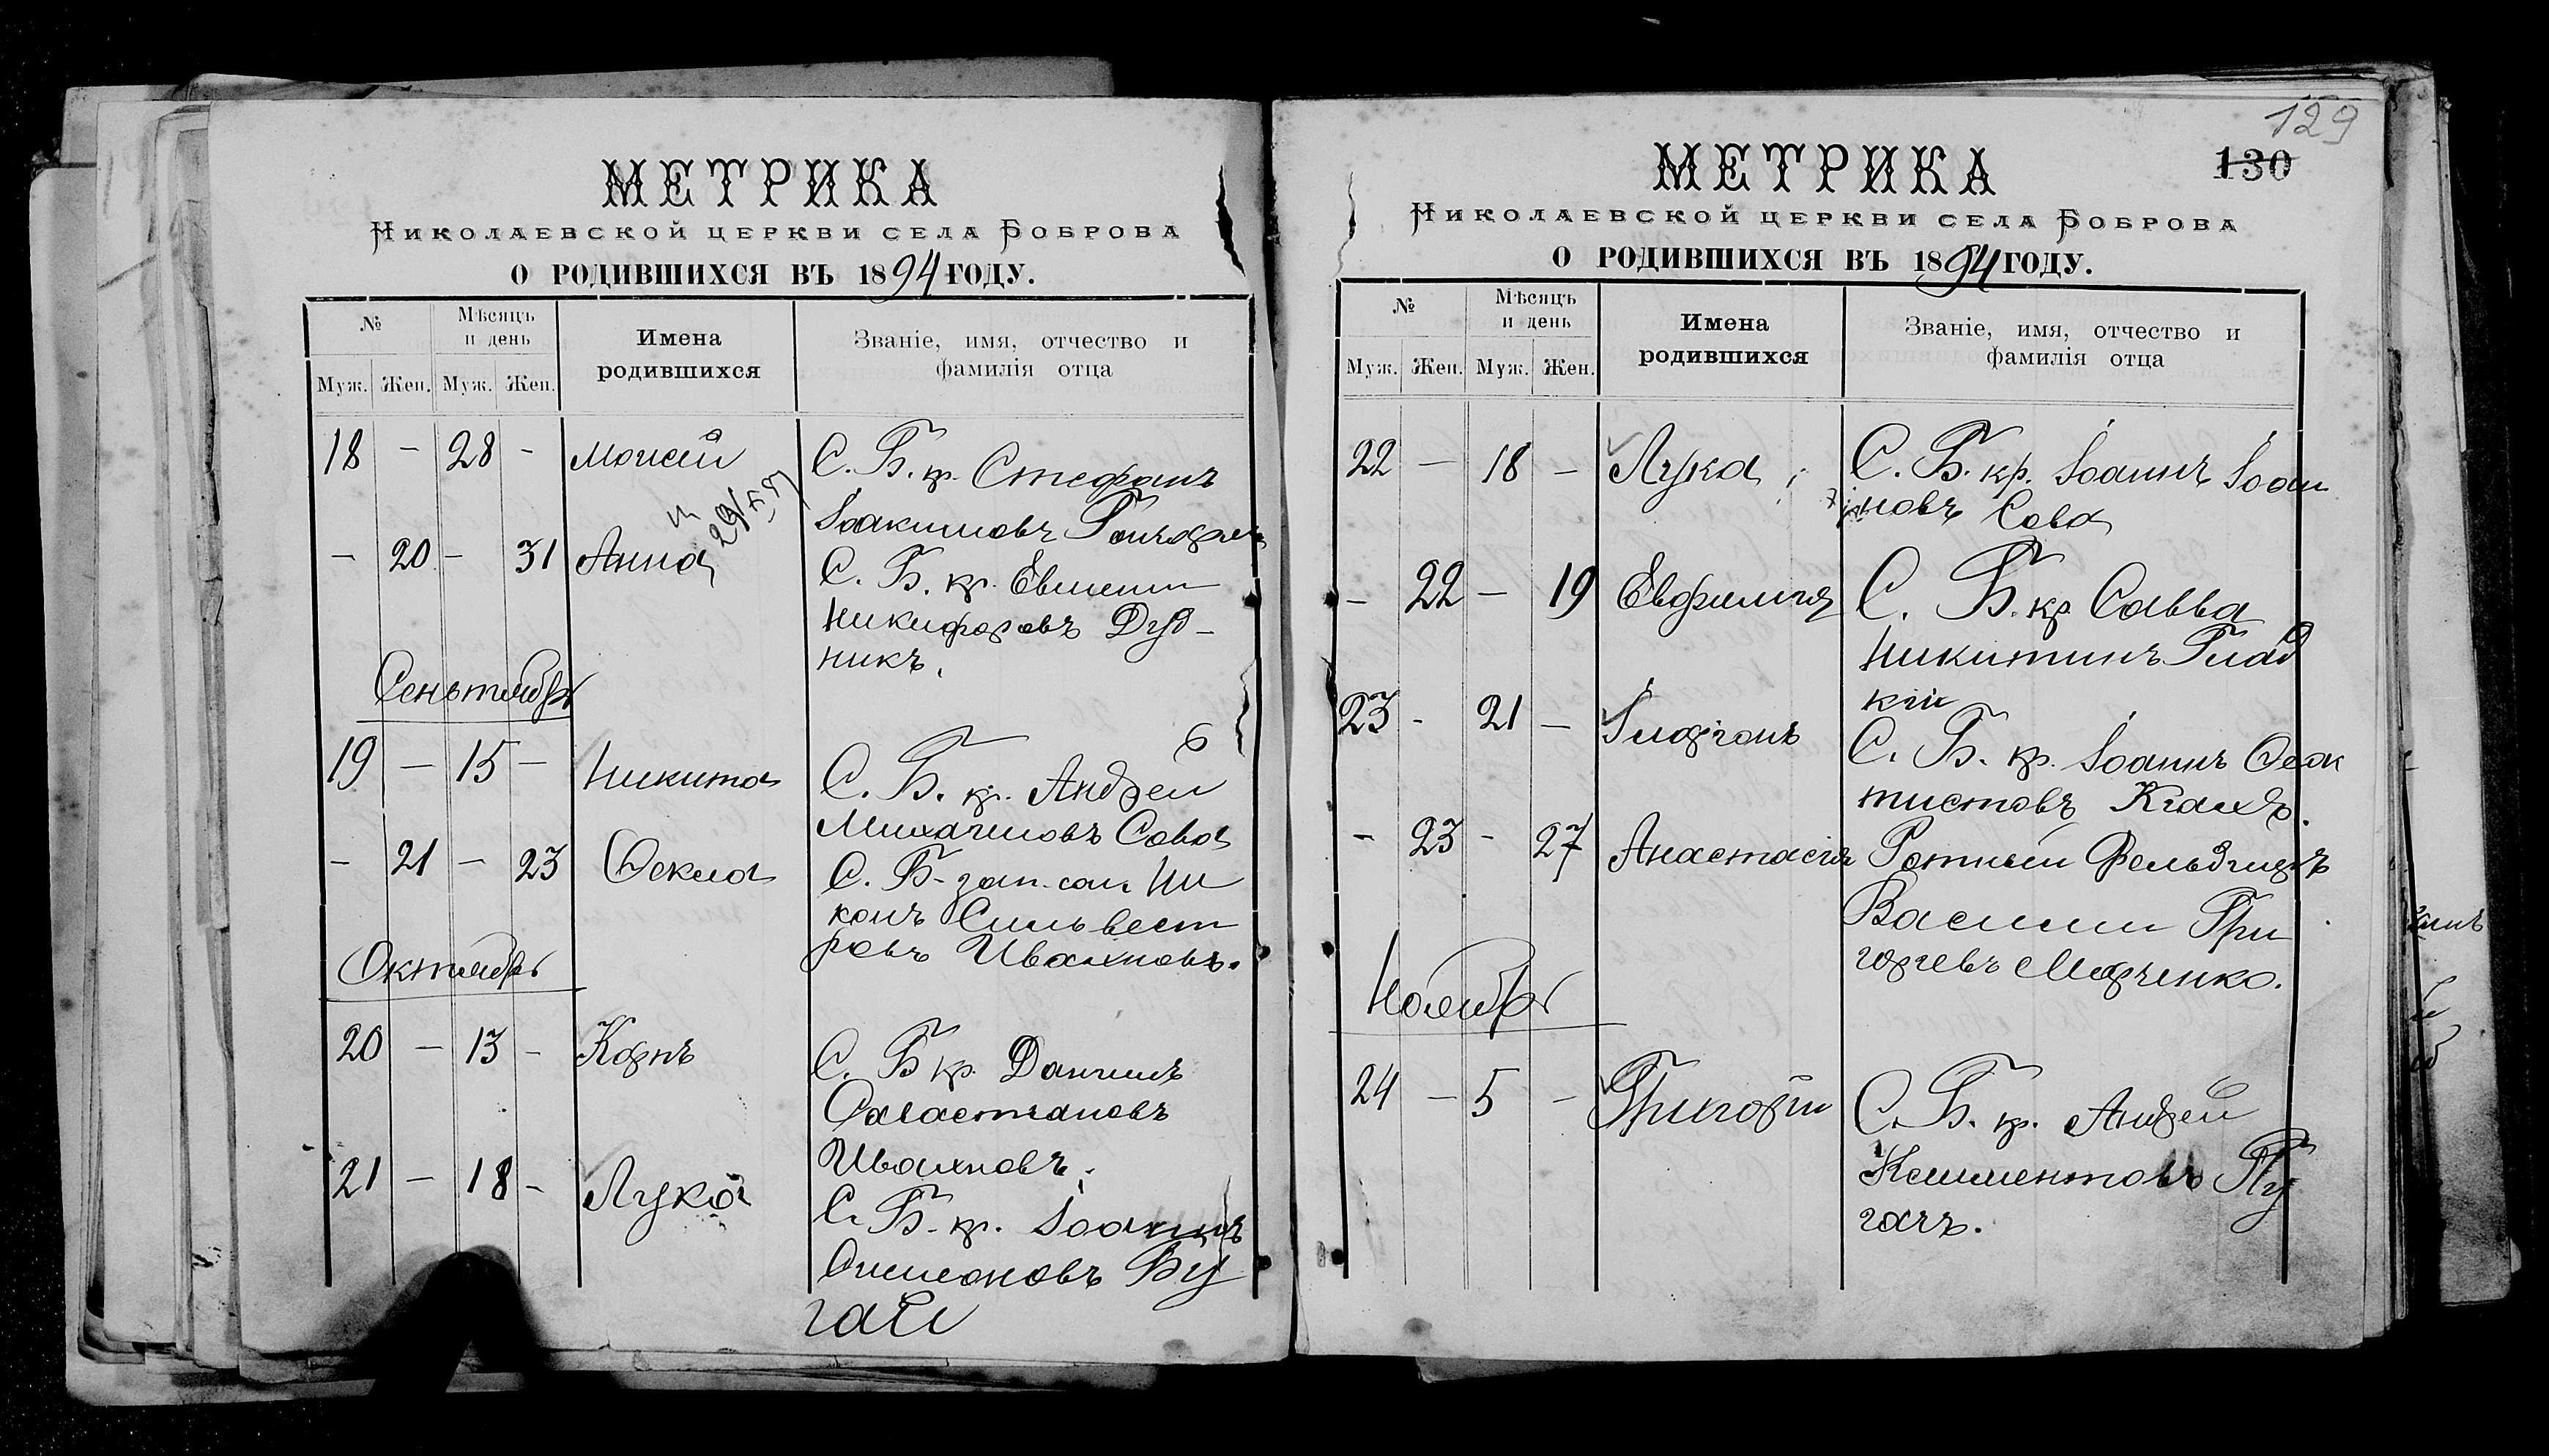 МЕТРИКА
Николаевской церкви села Боброва
О РОДИВШИХСЯ ВЪ 1894 ГОДУ.
№
Мѣсяцъ и день
Имена родившихся
Званіе, имя, отчество и фамилія отца
Муж. Жен. Муж. Жен.
18 – 28 – Моисей
С. Б. кр. Стефанъ
Іоакимовъ
– 20 – 31 Анна
С. Б. кр. Евменій
Никифоровъ Дуд-
никъ.
Сеньтябрь
19 – 15 – Никита
С. Б. кр. Андрей
Михаиловъ Сова
– 21 – 23 Ѳекла
С. Б. зап. сол. Ни
конъ Сильвест
ровъ Ивахновъ.
Октябрь
20 – 13 – Карпъ
С. Б. кр. Даніилъ
Савастіановъ
Ивахновъ.
21 – 18 – Лука
С. Б. кр. Іоаннъ
Симеоновъ Бу
гай
129
130
МЕТРИКА
Николаевской церкви села Боброва
О РОДИВШИХСЯ ВЪ 1894 ГОДУ.
№
Мѣсяцъ и день
Имена родившихся
Званіе, имя, отчество и фамилія отца
Муж. Жен. Муж. Жен.
22 – 18 – Лука
С. Б. кр. Іоаннъ Іоан
новъ Сова
– 22 – 19 Евфимія
С. Б. кр. Савва
Никитинъ Глад
кій
23 – 21 – Иларіонъ
С. Б. кр. Іоаннъ Ѳеок
тистовъ
– 23 – 27 Анастасія
Ротный Фельдшеръ
Василій Гри
горіевъ Марченко.
Ноябрь
24 – 5 – Григорій
С. Б. кр. Андрей
Климентовъ Пу
гачъ.